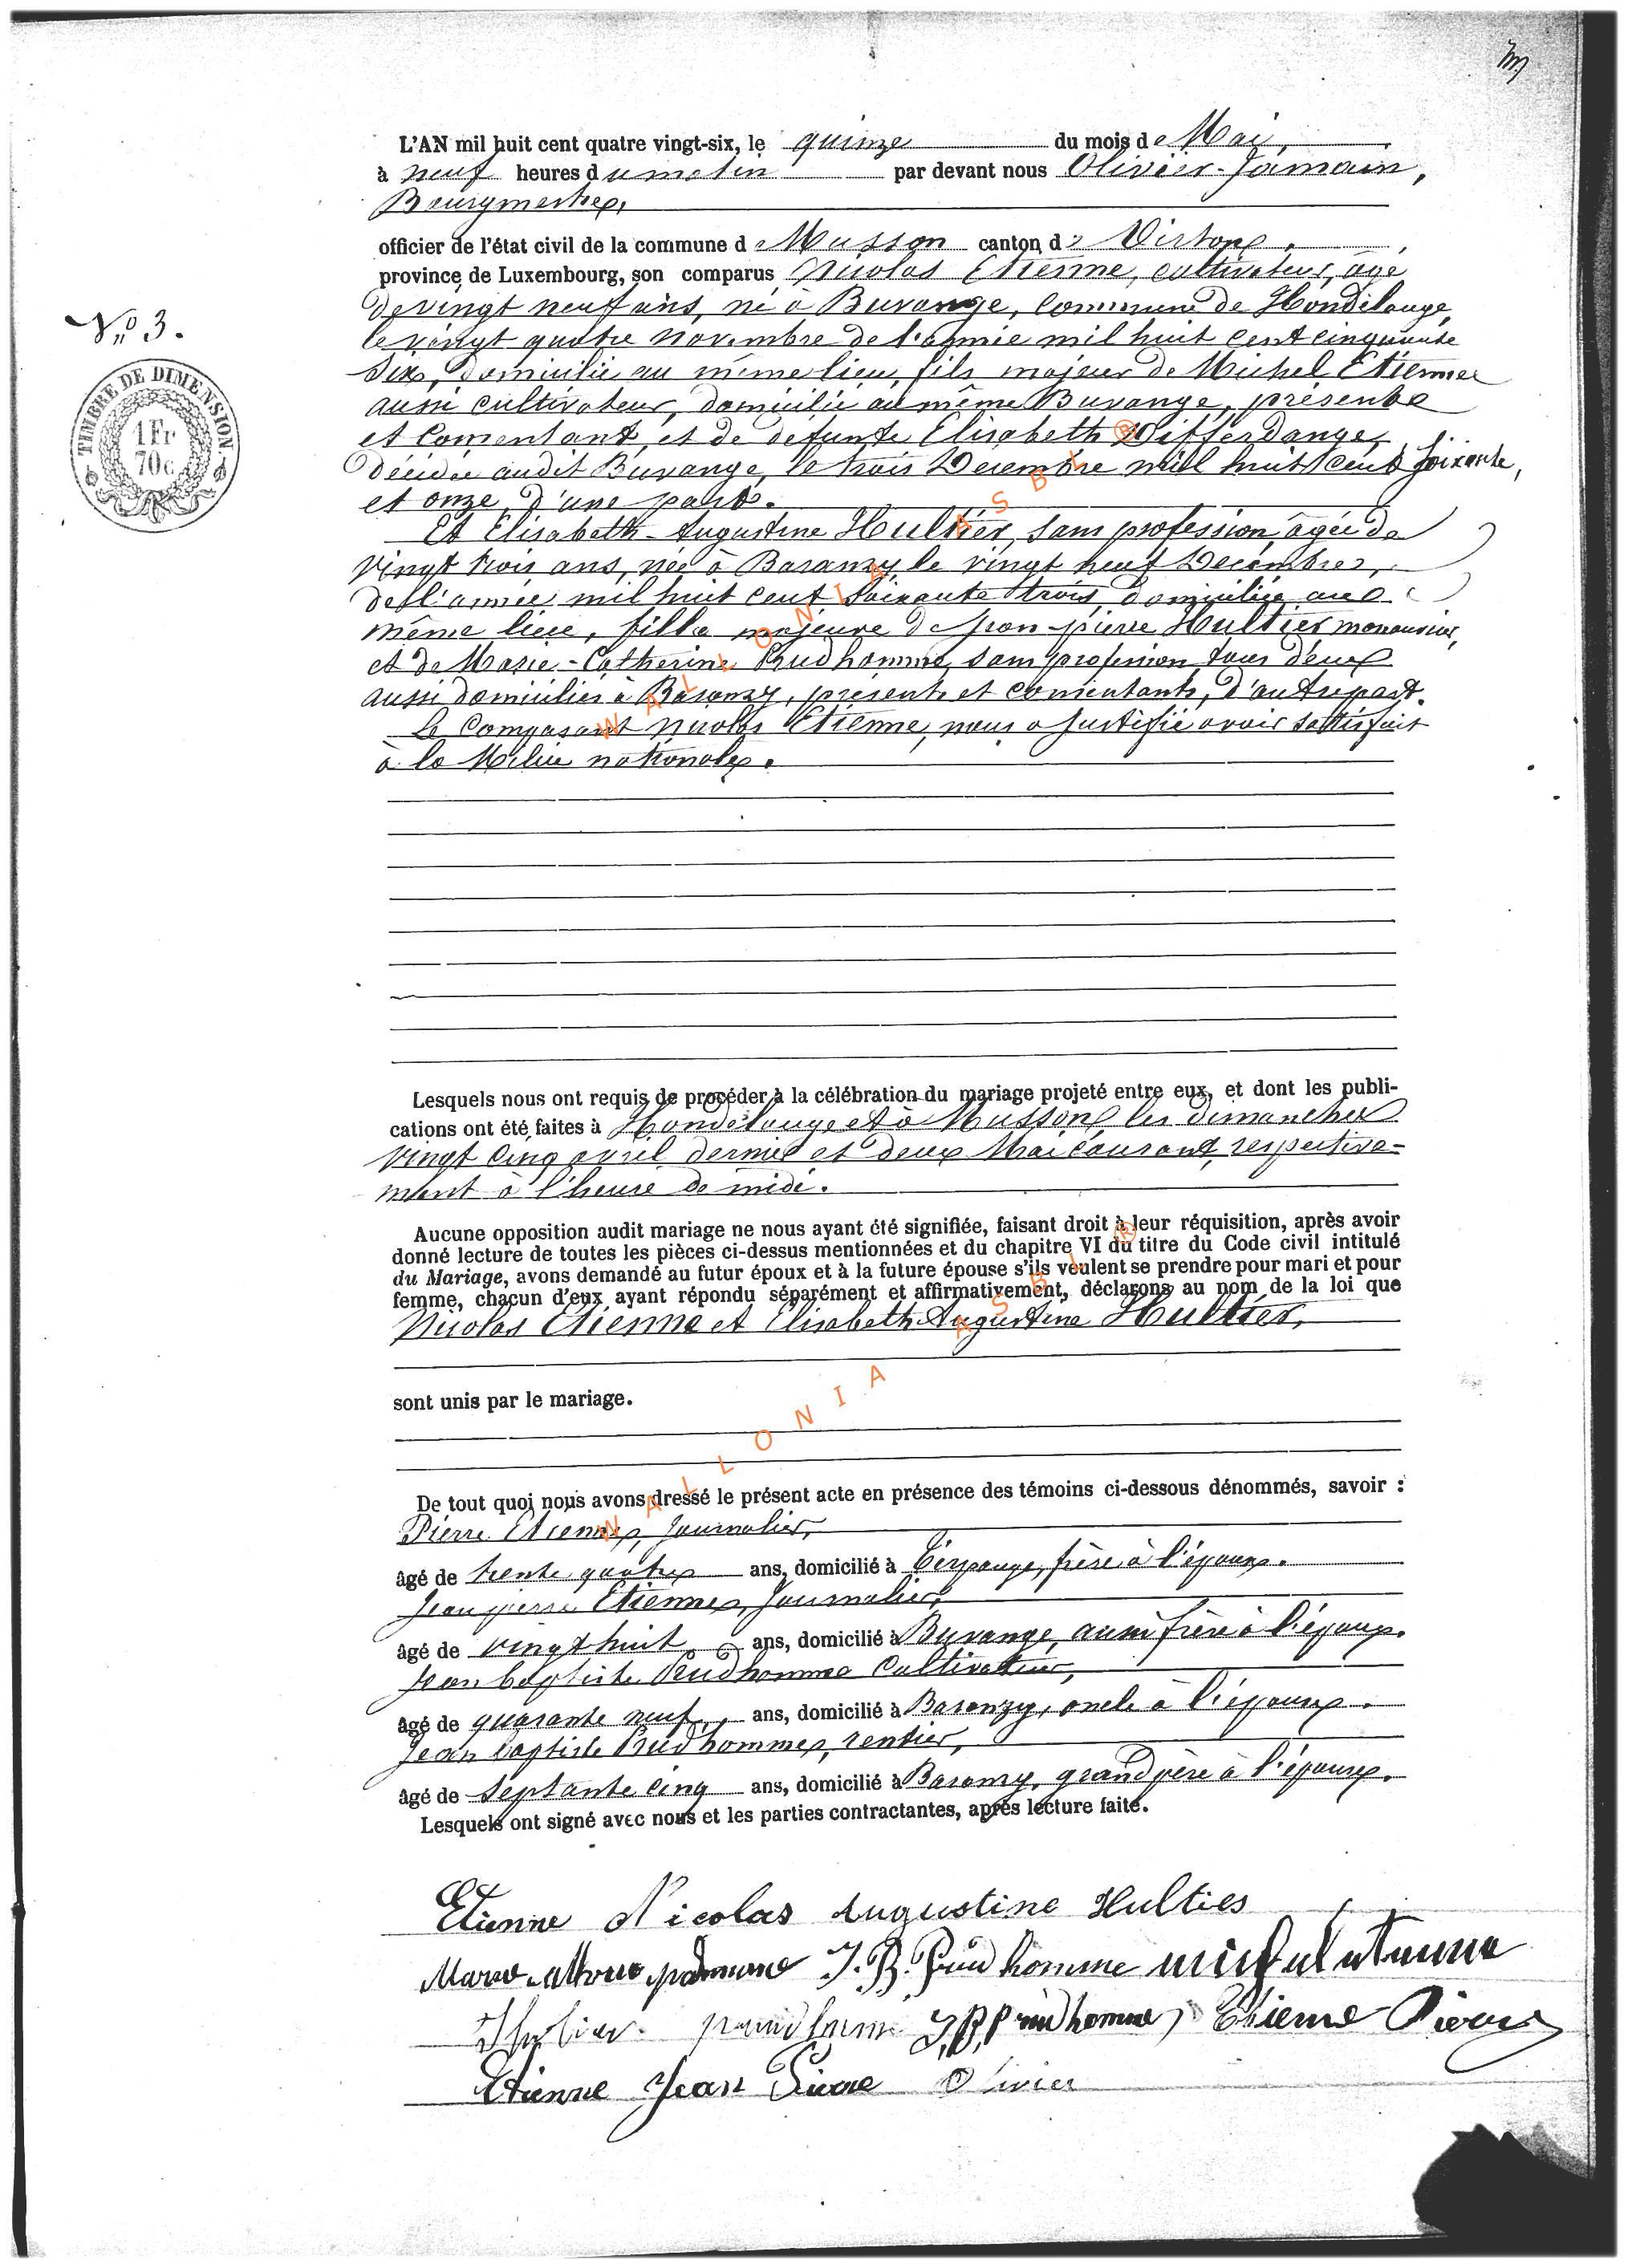 L'AN mil huit cent quatre vingt-six, le quinze du mois de Mai,
à neuf heures du matin par devant nous Olivier-Jamain,
Bourgmestre,
officier de l'état civil de la commune de Musson canton de Virton,
province de Luxembourg, son comparus Nicolas Etienne, cultivateur, âgé
de vingt neuf ans, né à Buvange, commune de Hondelange,
le vingt quatre novembre de l'année mil huit cent cinquante
N° 3.
six, domicilié au même lieu, fils majeur de Michel Etienne
aussi cultivateur, domicilié au même Buvange, présent
et consentant, et de défunte Elisabeth Differdange,
TIMBRE DE DIMENSION.
1 Fr
70 c
décédée audit Buvange, le trois Décembre mil huit cent soixante,
et onze, d'une part.
Et Elisabeth-Augustine Hultier, sans profession, âgée de
vingt trois ans, née à Baranzy le vingt neuf Décembre,
de l'année mil huit cent soixante trois, domiciliée au
même lieu, fille majeure de Jean-pierre Hultier manouvrier,
et de Marie-Catherine Prudhomme, sans profession, tous deux
aussi domiciliés à Baranzy, présents et consentants, d'autre part.
Le Comparant Nicolas Etienne, nous a justifié avoir satisfait
à la Milice nationale.
Lesquels nous ont requis de procéder à la célébration du mariage projeté entre eux, et dont les publi-
cations ont été faites à Hondelange et à Musson, les dimanches
vingt cinq avril dernier et deux Mai courant, respective-
ment à l'heure de midi.
Aucune opposition audit mariage ne nous ayant été signifiée, faisant droit à leur réquisition, après avoir
donné lecture de toutes les pièces ci-dessus mentionnées et du chapitre VI du titre du Code civil intitulé
du Mariage, avons demandé au futur époux et à la future épouse s'ils veulent se prendre pour mari et pour
femme, chacun d'eux ayant répondu séparément et affirmativement, déclarons au nom de la loi que
Nicolas Etienne et Elisabeth Augustine Hultier,
sont unis par le mariage.
De tout quoi nous avons dressé le présent acte en présence des témoins ci-dessous dénommés, savoir :
Pierre Etienne, Journalier,
âgé de trente quatre ans, domicilié à frère à l'époux.
Jean pierre Etienne, Journalier,
âgé de vingt huit, ans, domicilié à Buvange, aussi frère à l'époux.
Jean baptiste Prudhomme Cultivateur,
âgé de quarante neuf, ans, domicilié à Baranzy, oncle à l'épouse.
Jean baptiste Prudhomme, rentier,
âgé de septante cinq ans, domicilié à Baranzy, grand père à l'épouse.
Lesquels ont signé avec nous et les parties contractantes, après lecture faite.
Etienne Nicolas Augustine Hulties
J. B. Prud homme
J, B, Prudhomme, Etienne Pierre
Etienne Jean Pierre Olivier
WALLONIA ASBL ®
WALLONIA ASBL ®